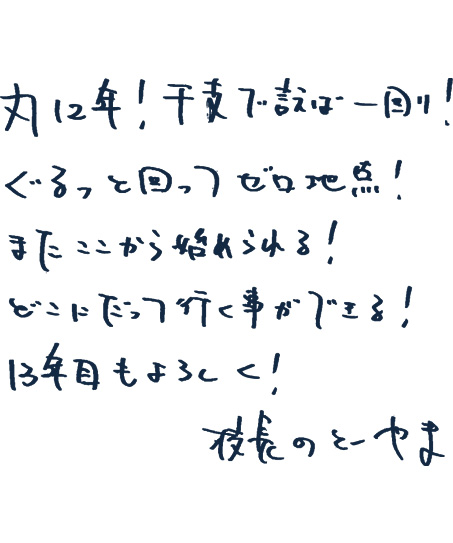 丸12年！干支で言えば一回り！
ぐるっと回ってゼロ地点！
またここから始められる！
どこにだって行く事ができる！
13年目もよろしく！
校長のとーやま